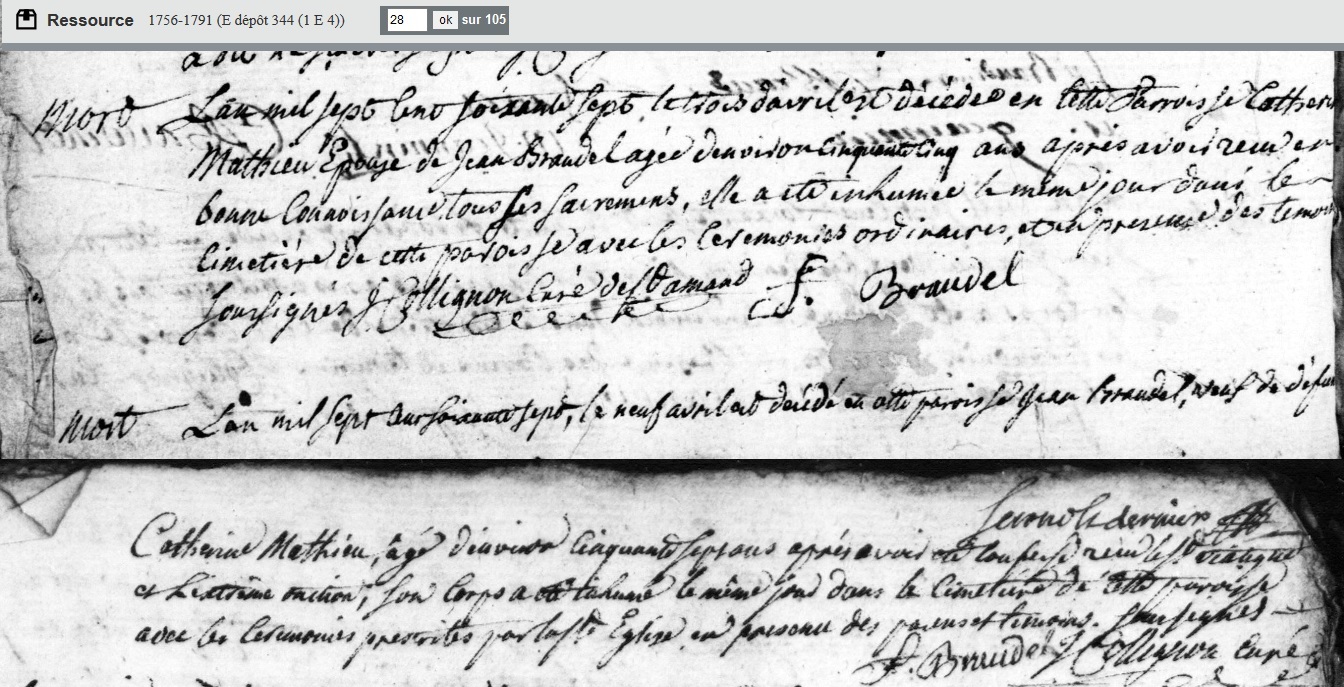 Ressource 1756-1791 (E dépôt 344 (1 E 4)) 28 ok sur 105
mord L'an mil sept cent soixante sept, le trois d'avril est décédée en cette Parroisse Catherin
Mathieu Epouse de Jean Braudel agée d'environ cinquante cinq ans après avoir reçu en
bonne connoissance tous ses sacremens, elle a eté inhumée le même jour dans le
cimetière de cette paroisse avec les Ceremonies ordinaires, et en presence des temoin
soussignés J Collignon Curé de St amand f. Braudel
mort L'an mil sept cent soixante sept, le neuf avril est decédé en cette paroisse Jean Braudel, veuf de defun
second et dernier
Catherine Mathieu, agé d'environ cinquante sept ans après avoir été confessé reçu le St viatique
et L'extrême onction, son corps a été inhumé le même jour dans le Cimetière de cette paroisse
avec les Ceremonies prescrites par la Ste Eglise en presence des parens et temoins. soussignés
f. Braudel J Collignon curé